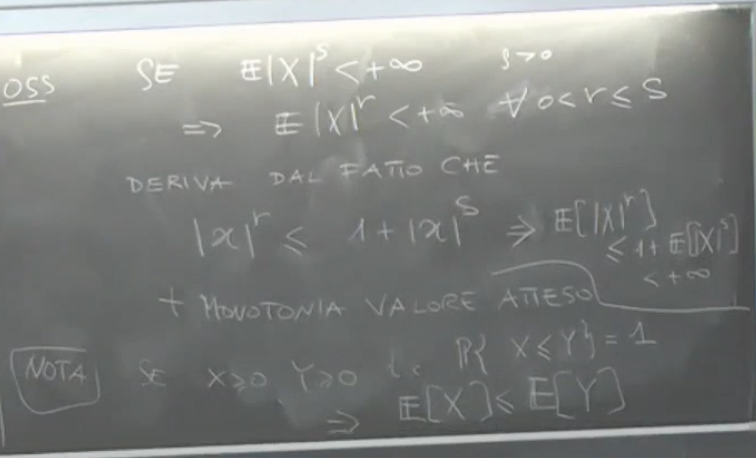 OSS SE 𝔼|X|^s < +∞ s>0
=> 𝔼|X|^r < +∞ ∀ 0<r≤s
DERIVA DAL FATTO CHE
|x|^r ≤ 1+|x|^s => 𝔼[|X|^r]
≤ 1+𝔼[|X|^s]
< +∞
+ MONOTONIA VALORE ATTESO
NOTA SE X≥0 Y≥0 t.c. P{X≤Y}=1
=> 𝔼[X] ≤ 𝔼[Y]